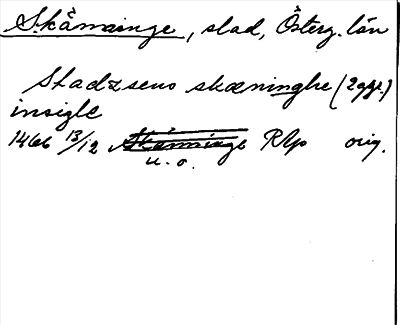 Skänninge, stad, Österg. län
Stadzsens skæninghe (2 ggr.)
insigle
1466 13/12 Skänninge RAp orig.
u. o.